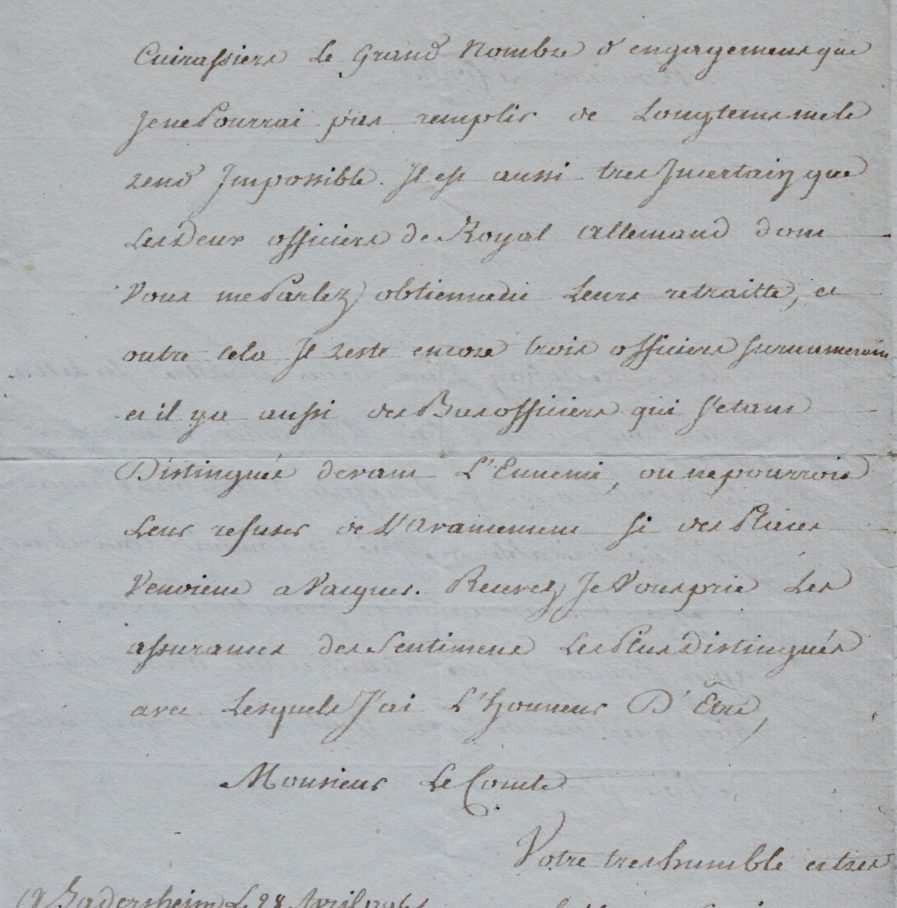 Cuirassiers le Grand Nombre d'engagemens que
Je ne Pourrai pas remplir de Longtems me le
rend Jmpossible. Jl est aussi tres Jncertain que
les Deux officiers de Royal Allemand dont
Vous me Parlez, obtiennent Leurs retraitte, et
outre cela Jl reste encore trois officiers surnumerair
et il y a aussi des Bas officiers qui s'etant
Distingués devant L'Ennemi, on ne pourrois
Leur refuser de L'avancement si des Places
Venoient a Vacquer. Recevez, Je Vous prie Les
assurances des Sentimens Les Plus Distingués
avec Lesquels J'ai L'honneur D'Être,
Monsieur Le Comte
Votre tres humble et tres
Le 28 Avril